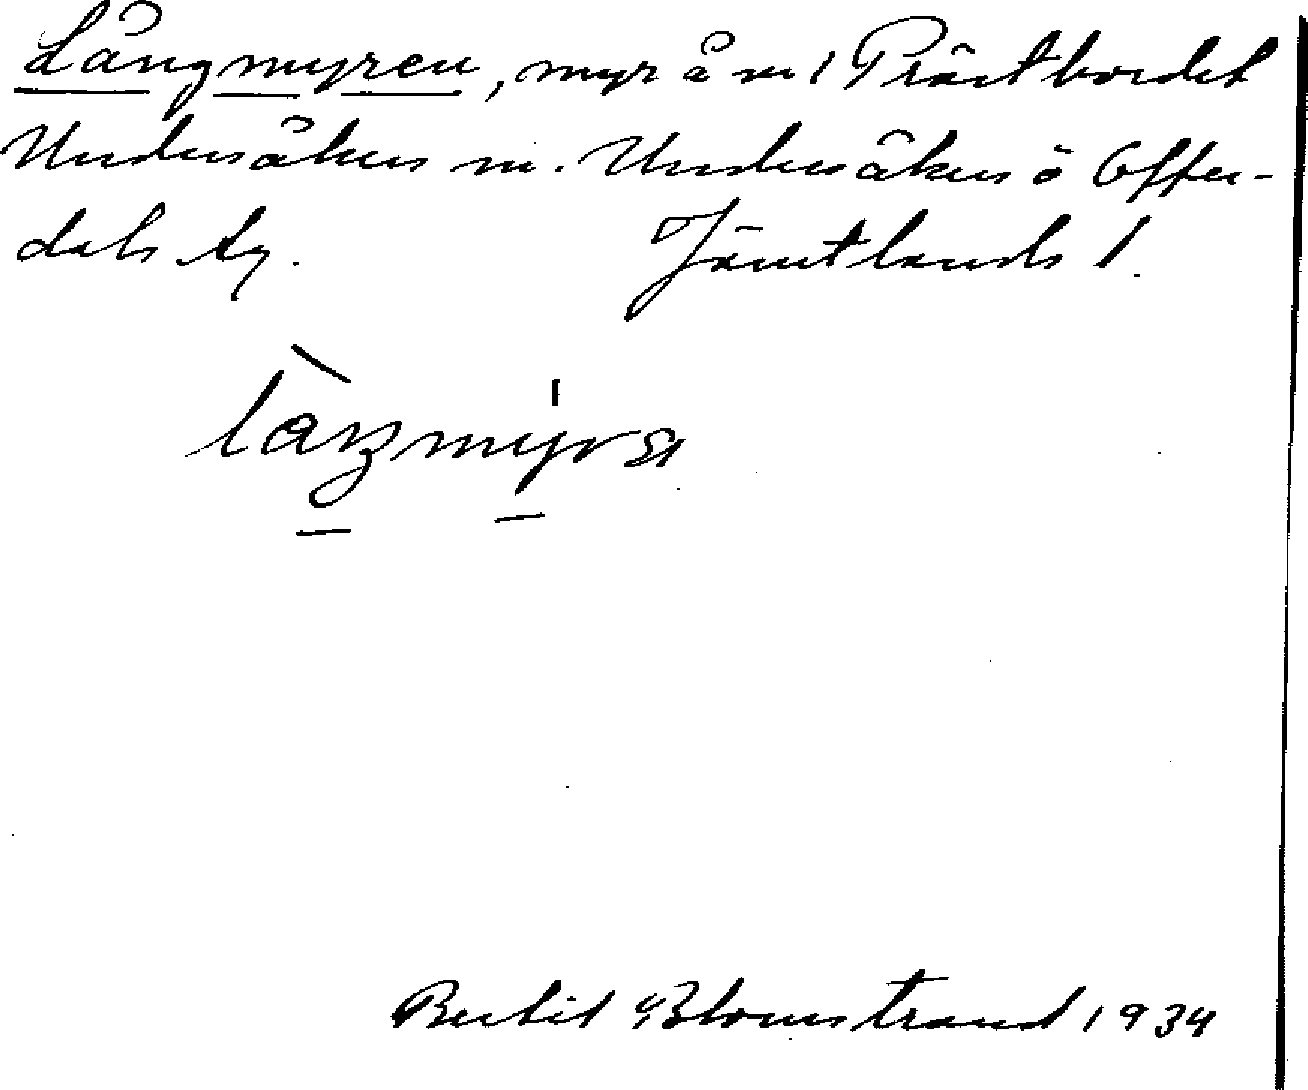 Långmyren, myr å n:r 1 Prästbordet
Undersåkers sn. Undersåkers o Offer-
dals tg. Jämtlands l.
Bertil Blomstrand 1934